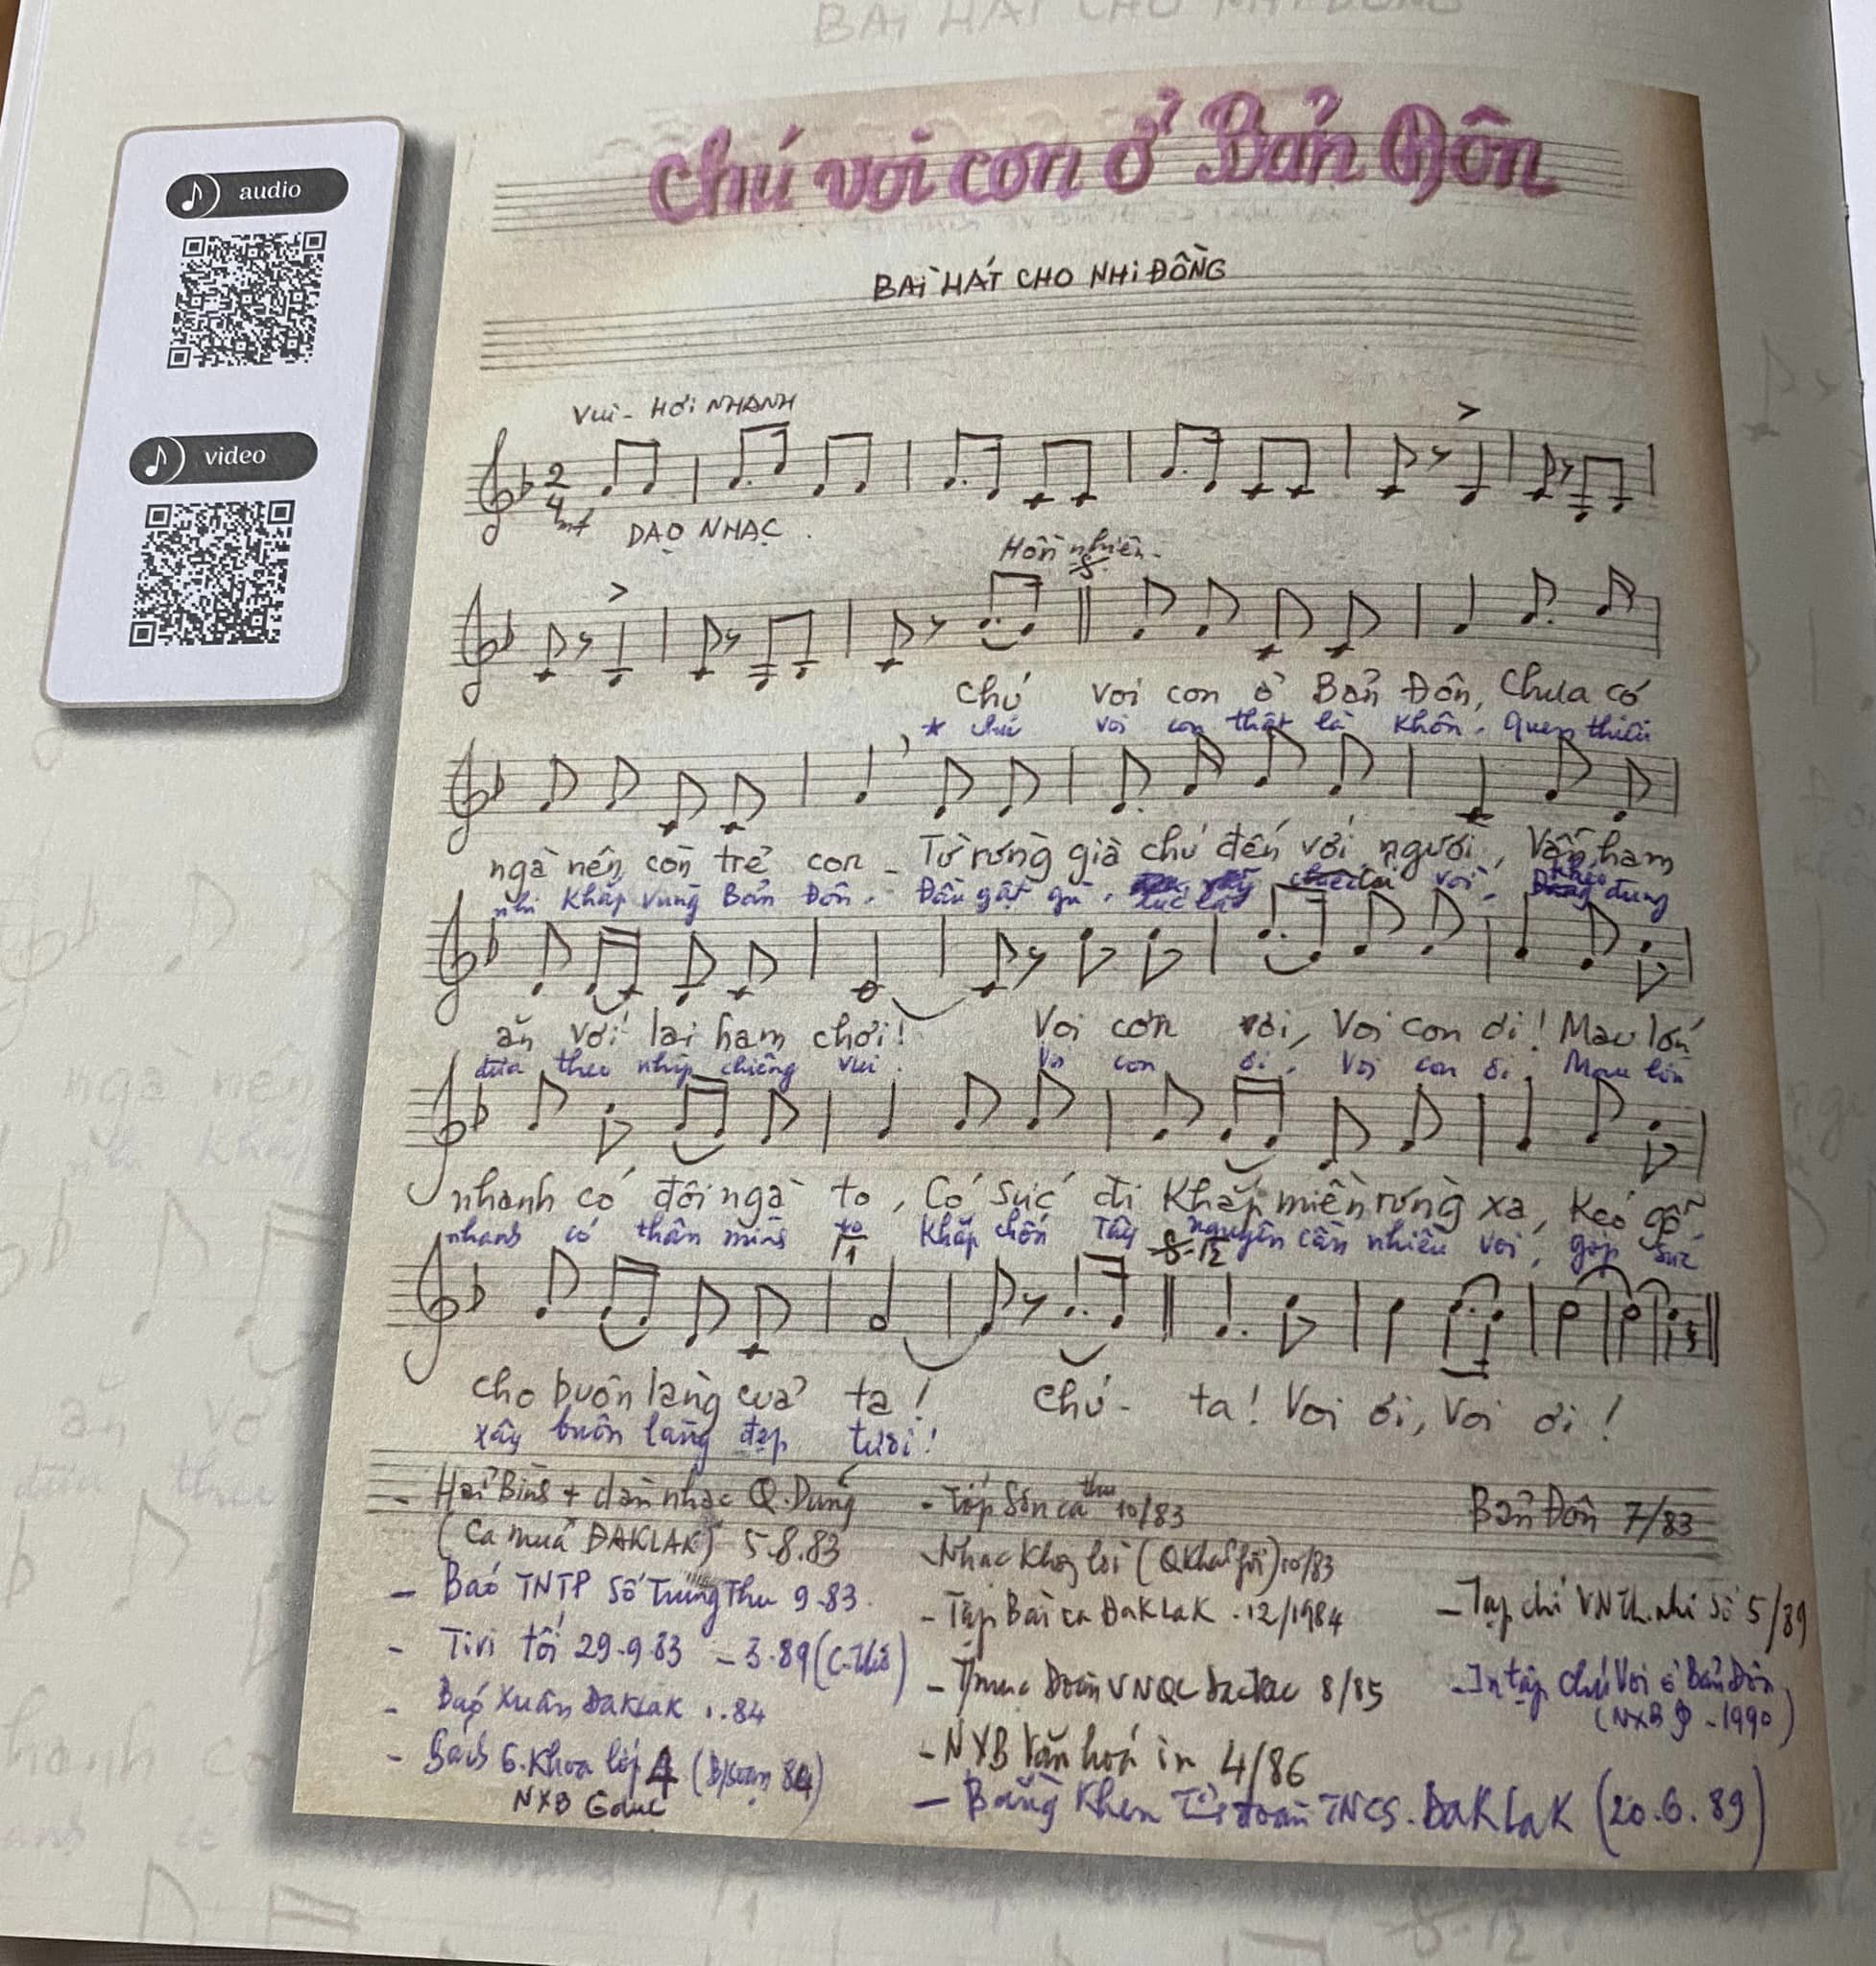 BÀI HÁT CHO NHI ĐỒNG
audio
video
Chú voi con ở Bản Đôn
BÀI HÁT CHO NHI ĐỒNG
Vui - Hơi NHANH
2
4
mf
DẠO NHẠC
Hồn nhiên
Chú voi con ở Bản Đôn, Chưa có
* chú voi con thật là khôn. quen thiếu
ngà nên còn trẻ con - Từ rừng già chú đến với người, Vẫn ham
nhi khắp vùng Bản Đôn. Đầu gật gù, lúc lắc voi, khéo đung
ăn với lại ham chơi! Voi con ơi, Voi con ơi! Mau lớn
đưa theo nhịp chiêng vui. Voi con ơi, Voi con ơi. Mau lớn
nhanh có đôi ngà to, Có sức đi khắp miền rừng xa, kéo gỗ
nhanh có thân mình to khắp chốn Tây nguyên cần nhiều voi, góp sức
cho buôn làng của ta! Chú - ta! Voi ơi, Voi ơi!
xây buôn làng đẹp tươi!
- Hải Bình + dàn nhạc Q. Dũng
(Ca múa ĐAKLAK) 5.8.83
- Báo TNTP Số Trung Thu 9.83.
- Tivi tối 29.9.83 - 3.89
- Báo Xuân ĐakLak 1.84
- Sách G. Khoa lớp 4 (B/soạn 84)
NXB Gduc
- Tốp Sơn ca thu 10/83
- Nhạc không lời 10/83
- Tập Bài ca ĐakLak . 12/1984
VNQC 8/85
- NXB Văn hoá in 4/86
- Bằng khen Tỉnh đoàn TNCS. ĐakLak (20.6.89)
Bản Đôn 7/83
- Tạp chí VN th. nhi Số 5/89
- In tập chú Voi ở Bản Đôn
(NXB - 1990)